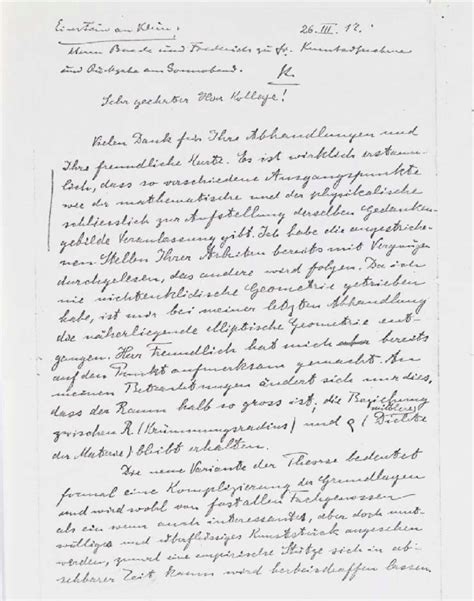 Einstein an Klein.
26. III. 17.
Herrn Baade und Freundlich zu fr. Kenntnisnahme
und Rückgabe am Sonnabend.
K.
Sehr geehrter Herr Kollege!
Vielen Dank für Ihre Abhandlungen und
Ihre freundliche Karte. Es ist wirklich erstaun-
lich, dass so verschiedene Ausgangspunkte
wie der mathematische und der physikalische
schliesslich zur Aufstellung derselben Gedanken-
gebilde Veranlassung gibt. Ich habe die angestriche-
nen Stellen Ihrer Arbeiten bereits mit Vergnügen
durchgelesen, das andere wird folgen. Da ich
nie nichteuklidische Geometrie getrieben
habe, ist mir bei meiner letzten Abhandlung
die näherliegende elliptische Geometrie ent-
gangen. Herr Freundlich hat mich bereits
auf den Punkt aufmerksam gemacht. An
meinen Betrachtungen ändert sich nur dies,
dass der Raum halb so gross ist; die Beziehung
zwischen R (Krümmungsradius) und ρ (mittlere Dichte
der Materie) bleibt erhalten.
Die neue Variante der Theorie bedeutet
formal eine Komplizierung der Grundlagen
und wird wohl von fast allen Fachgenossen
als ein wenn auch interessantes, aber doch mut-
williges und überflüssiges Kunststück angesehen
werden, zumal eine empirische Stütze sich in ab-
sehbarer Zeit kaum wird herbeischaffen lassen.